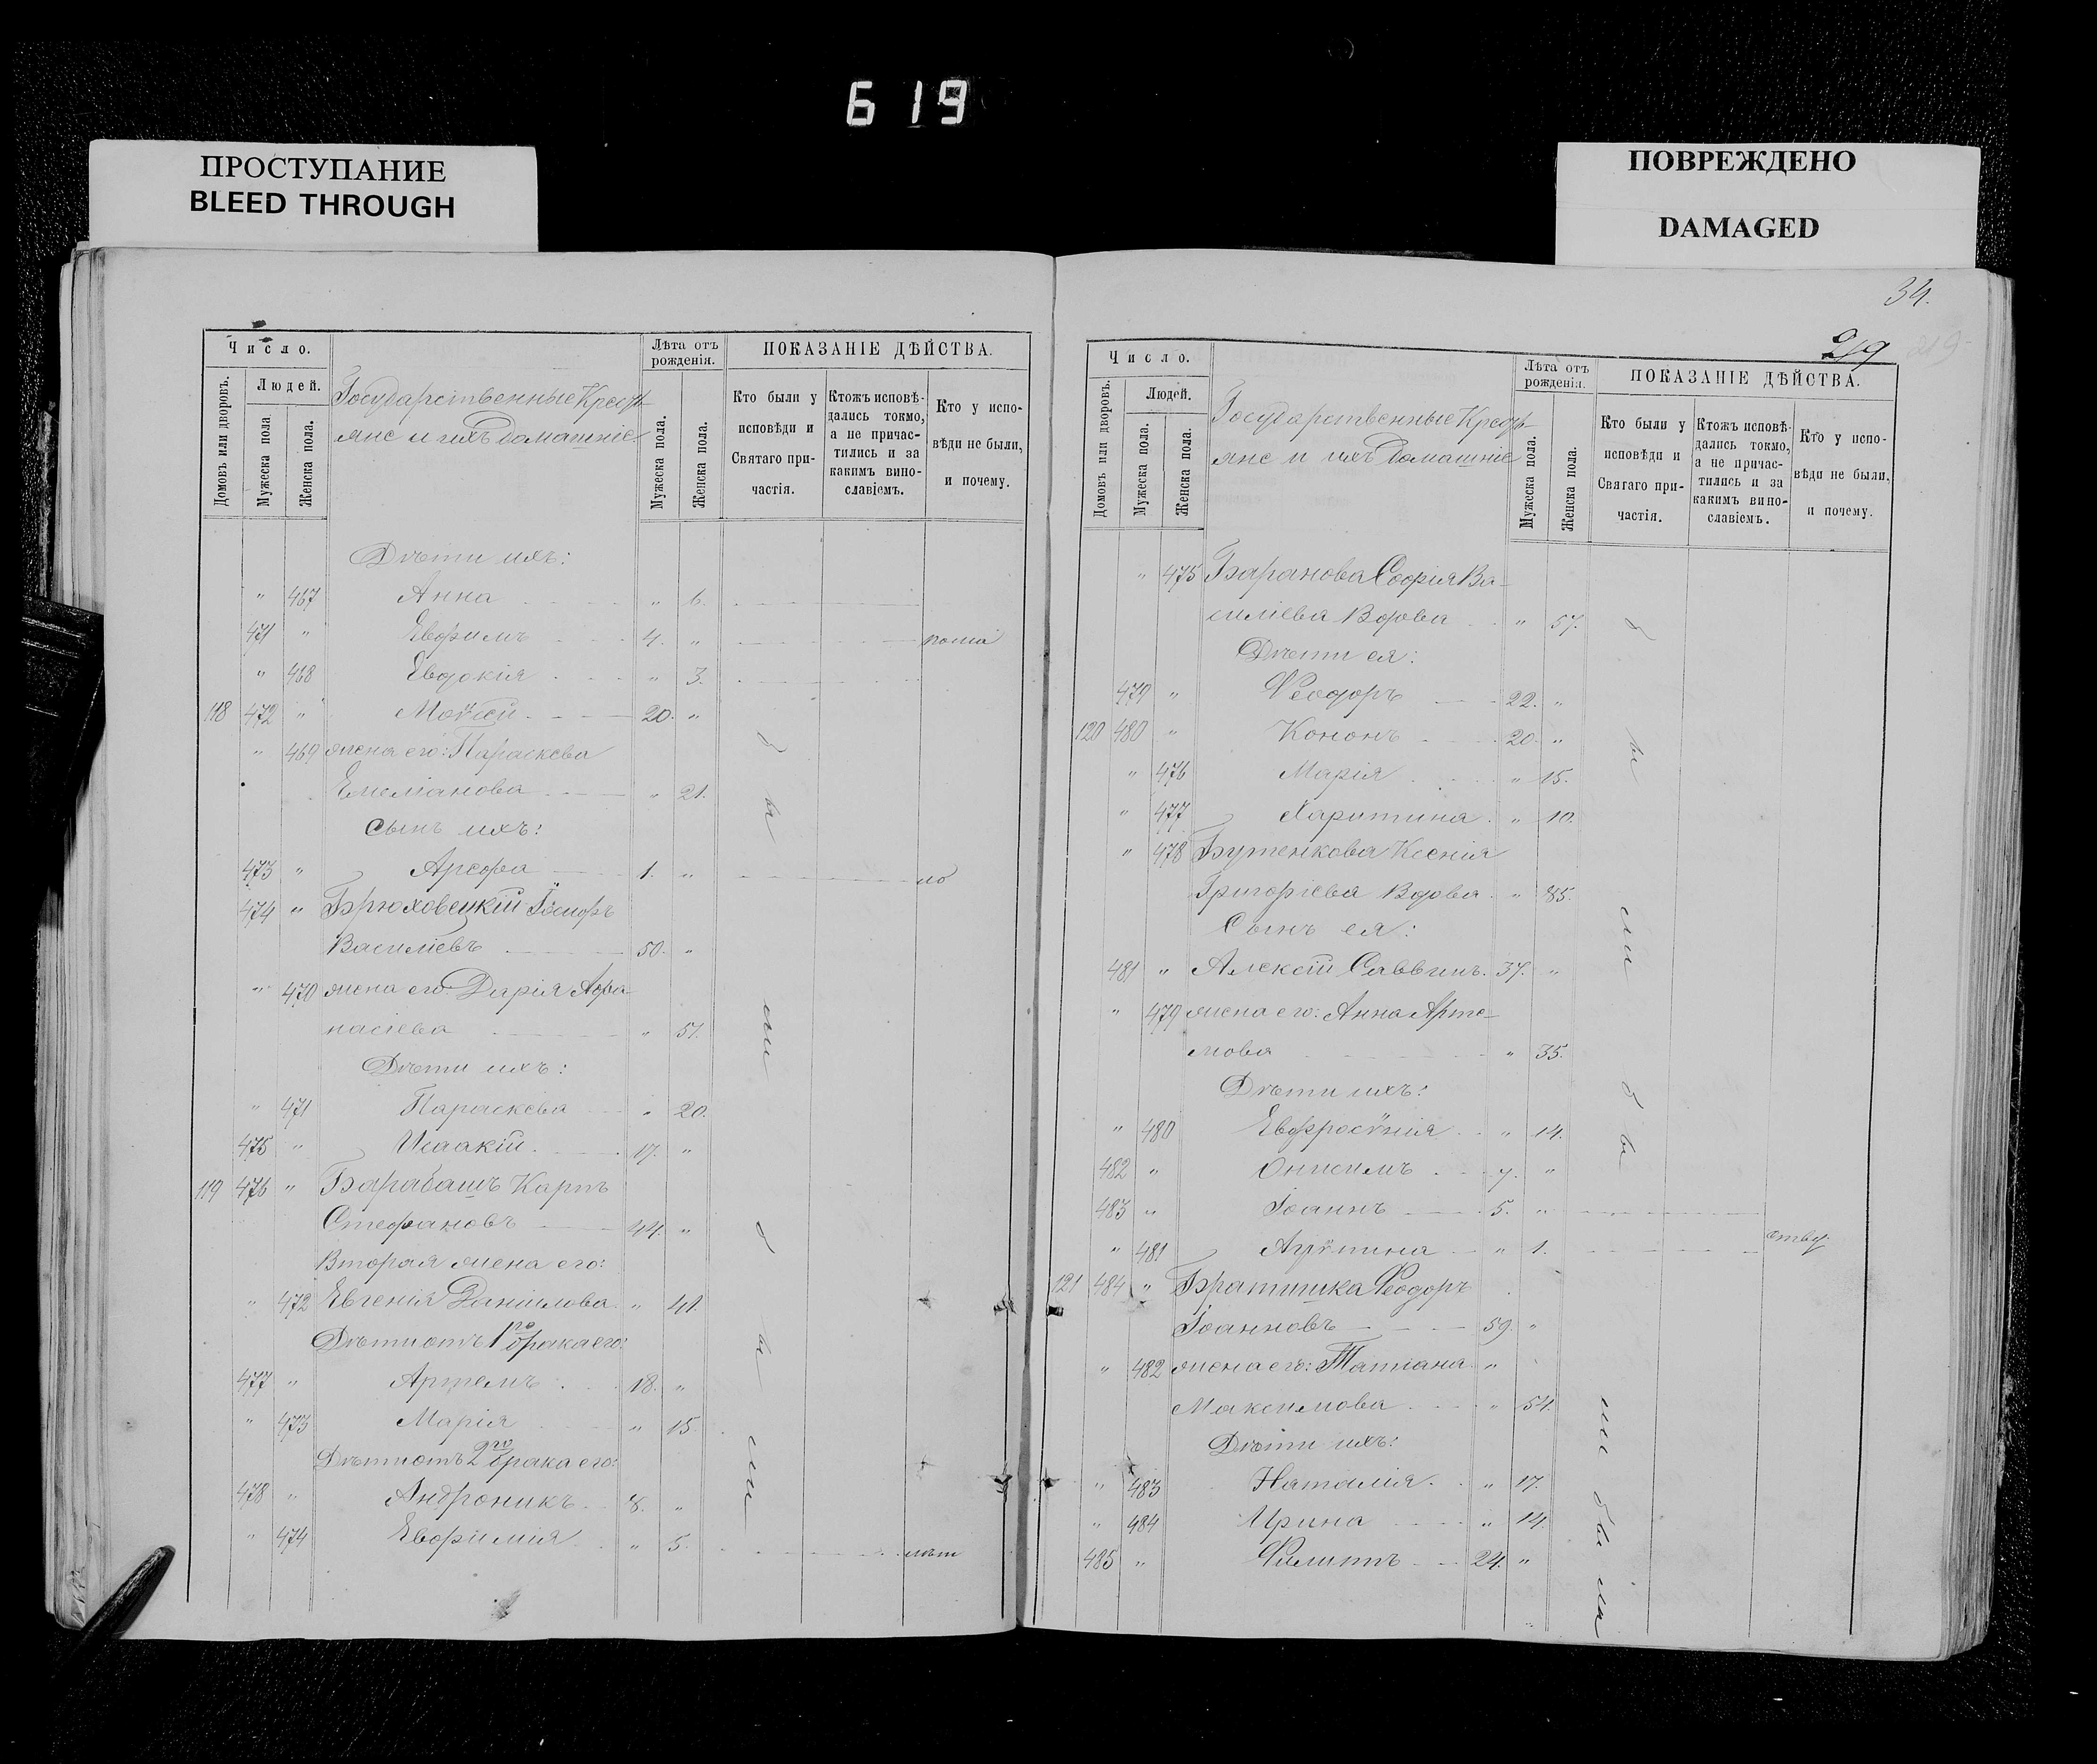 619
ПРОСТУПАНИЕ
BLEED THROUGH
ПОВРЕЖДЕНО
DAMAGED
Число.
Людей.
Домовъ или дворовъ.
Мужеска пола
Женска пола.
Государственные Кресть-
яне и ихъ домашніе
Лѣта отъ рожденія.
Мужеска пола.
Женска пола.
ПОКАЗАНІЕ ДѢЙСТВА.
Кто были у исповѣди и Святаго при-частія.
Ктожъ исповѣ-дались токмо, а не причас-тились и за какимъ вино-славіемъ.
Кто у испо-вѣди не были, и почему.
Дѣти ихъ:
" 467 Анна " 6.
471 " Евфимъ 4. "
" 468 Евдокія " 3.
118 472 " Моѵсей 20. "
" 469 жена его: Параскева
Емеліанова " 21.
Сынъ ихъ:
473 " Арефа 1. " по
474 " Брюховецкій
Василіевъ 50. "
" 470 жена его Дарія Афа-
насіева " 51.
Дѣти ихъ:
" 471 Параскева " 20.
475 " Исаакій 17. "
119 476 " Барабашъ Карпъ
Стефановъ 44. "
Вторая жена его:
" 472 Евгенія Даніилова " 41.
Дѣти отъ 1го брака его:
477 " Артемъ 18. "
" 473 Марія " 15.
Дѣти отъ 2го брака его:
478 " Андроникъ 8. "
" 474 Евфимія " 5.
бы
ли
бы
ли
34.
219
219
Число.
Людей.
Домовъ или дворовъ.
Мужеска пола.
Женска пола.
Государственные Кресть-
яне и ихъ домашніе
Лѣта отъ рожденія.
Мужеска пола.
Женска пола.
ПОКАЗАНІЕ ДѢЙСТВА.
Кто были у исповѣди и Святаго при-частія.
Ктожъ исповѣ-дались токмо, а не причас-тились и за какимъ вино-славіемъ.
Кто у испо-вѣди не были, и почему.
" 475 Баранова Софія Ва-
силіева Вдова " 57.
Дѣти ея:
479 " Ѳеодоръ 22. "
120 480 " Кононъ 20. "
" 476 Марія " 15.
" 477 Харитина " 10.
" 478 Бутенкова Ксенія
Григоріева Вдова " 85.
Сынъ ея:
481 " Алексій Саввинъ 37. "
" 479 жена его: Анна Арте-
мова " 35.
Дѣти ихъ:
" 480 Евфросѵнія " 14.
482 " Онисимъ 7. "
483 " Іоаннъ 5. "
" 481 Агрѵпина " 1.
121 484 " Братишка Ѳеодоръ
Іоанновъ 59. "
" 482 жена его: Татіана "
Максимова " 54.
Дѣти ихъ:
" 483 Наталія " 17.
" 484 Ирина " 14.
485 " Филиппъ 24. "
бы
ли
бы